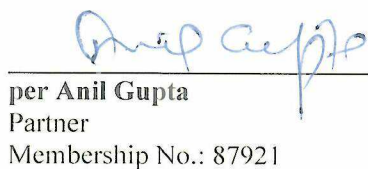 Anil Gupta
per Anil Gupta
Partner
Membership No.: 87921